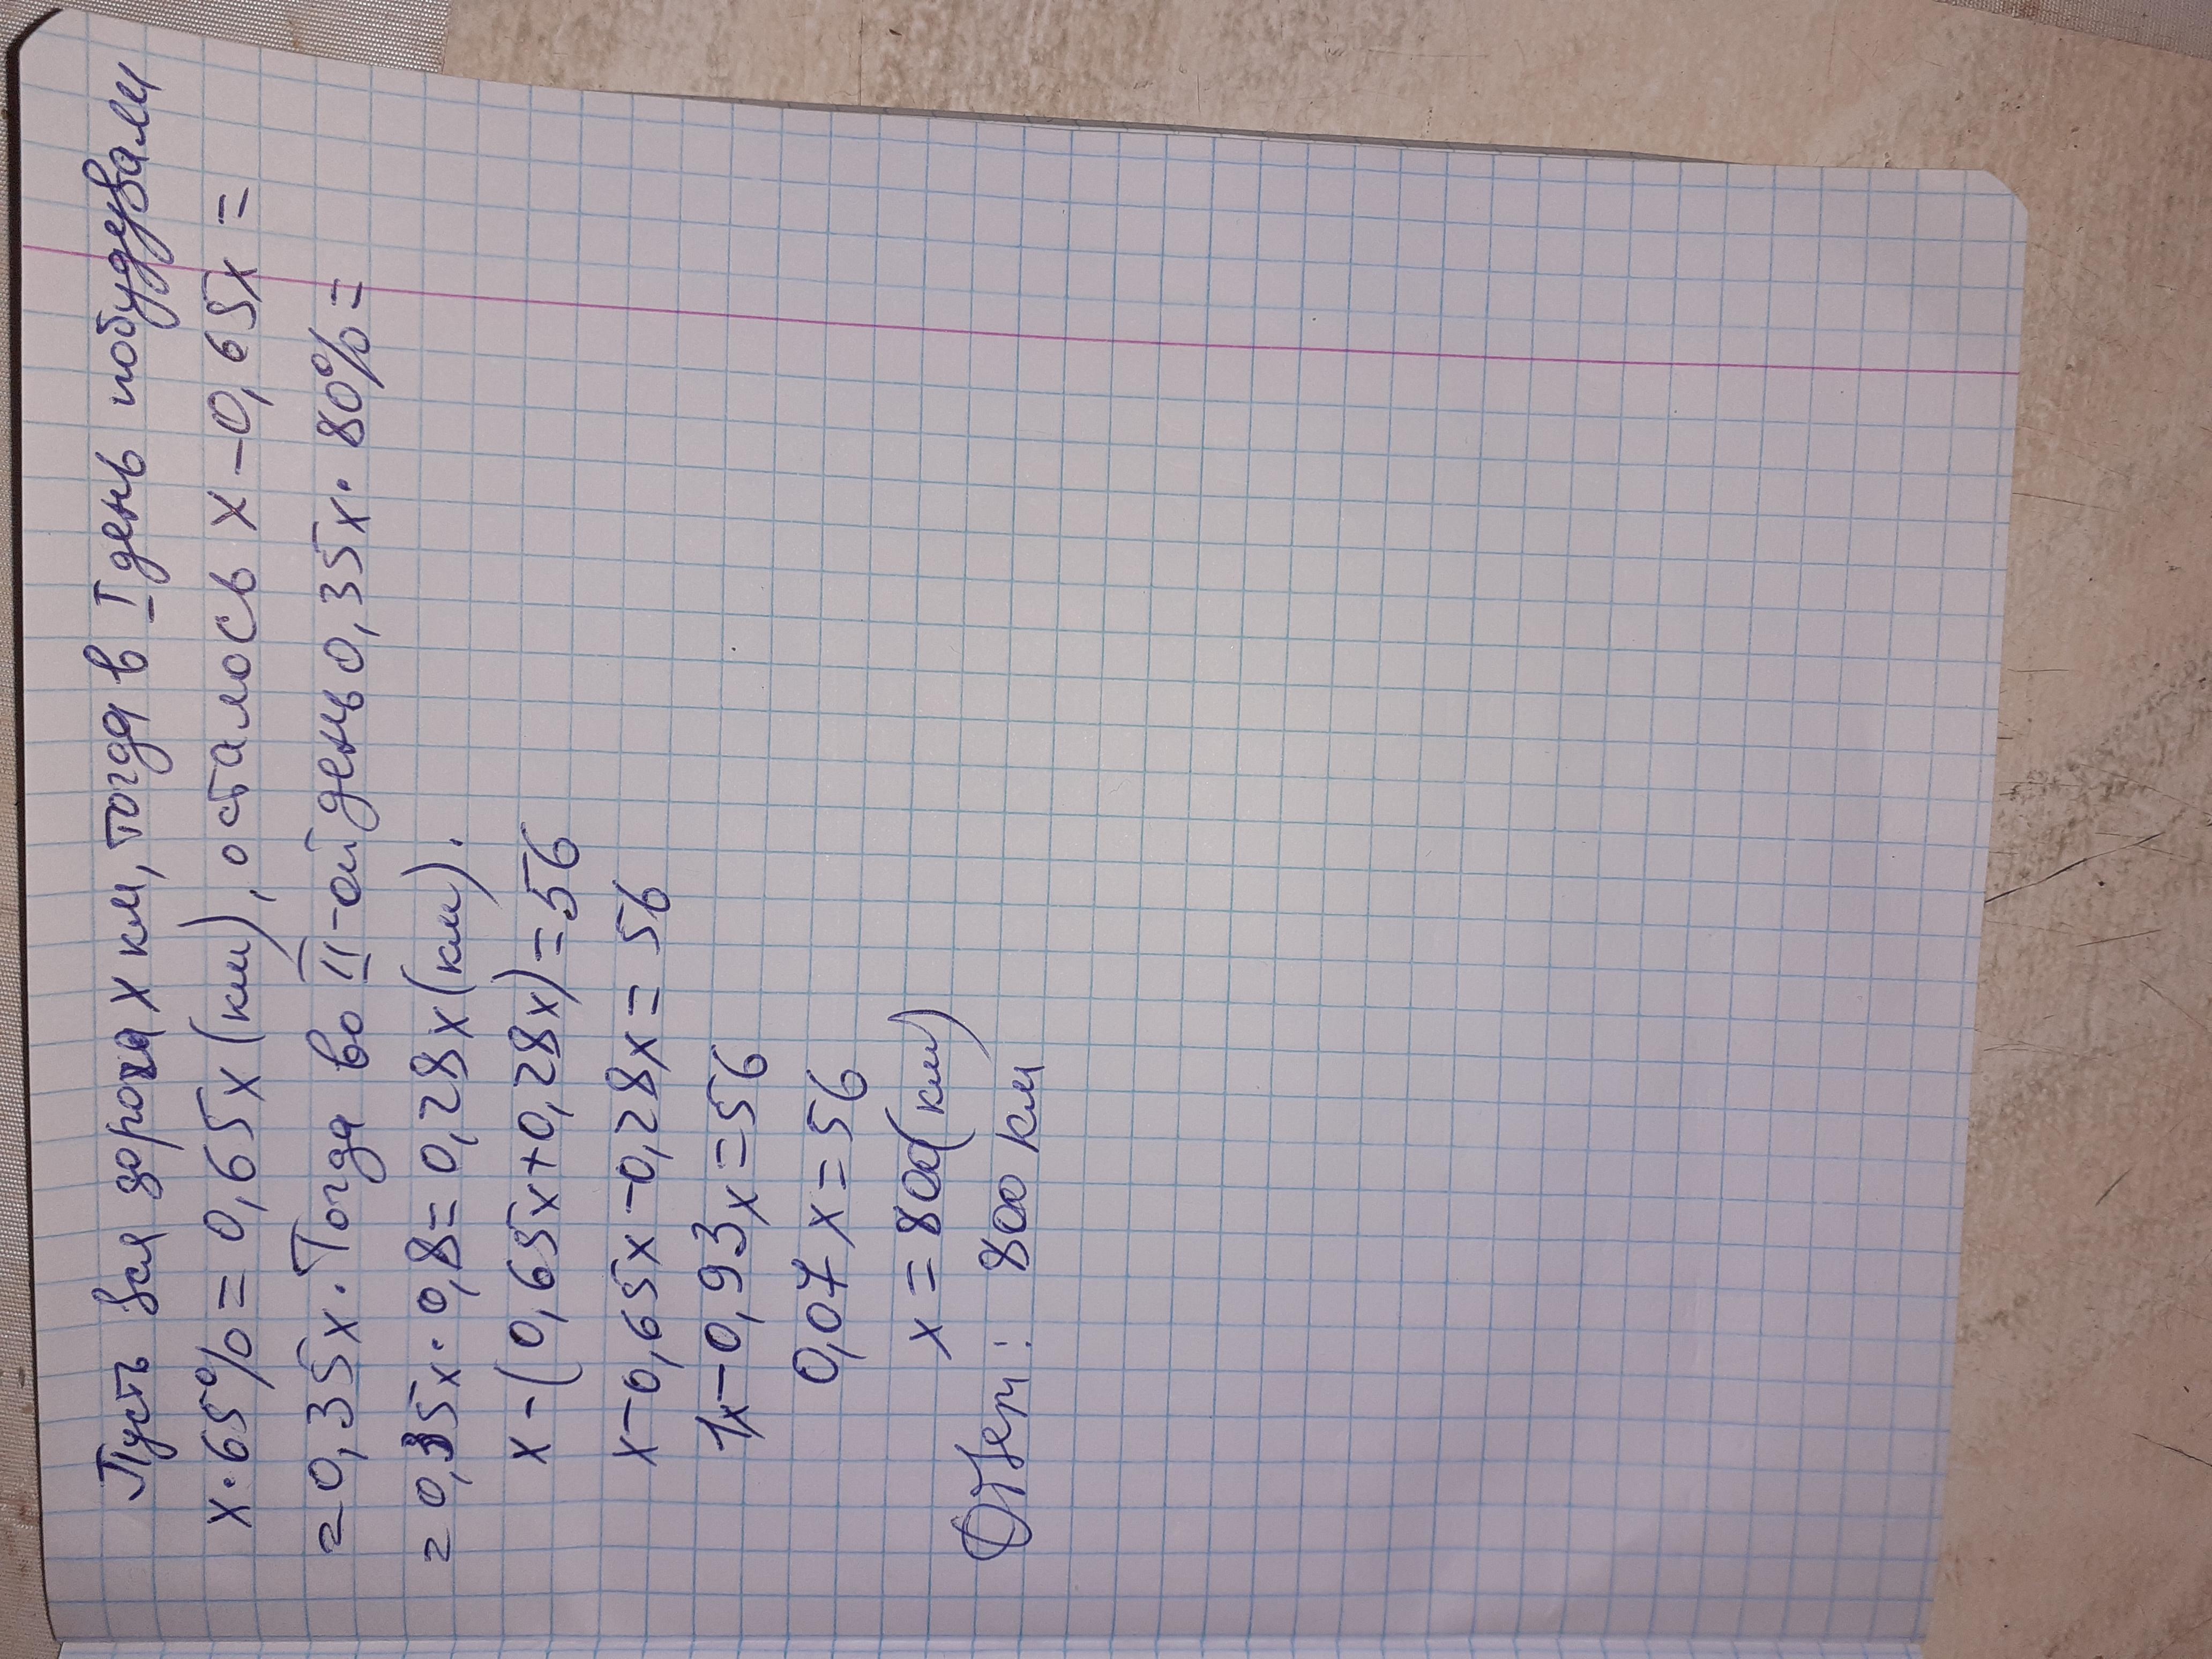 Пусть вся дорога x км, тогда в I день побудували
x · 65% = 0,65x (км), осталось x - 0,65x =
= 0,35x. Тогда во II-ой день 0,35x · 80% =
= 0,35x · 0,8 = 0,28x (км).
x - (0,65x + 0,28x) = 56
x - 0,65x - 0,28x = 56
1x - 0,93x = 56
0,07x = 56
x = 800 (км)
Ответ: 800 км